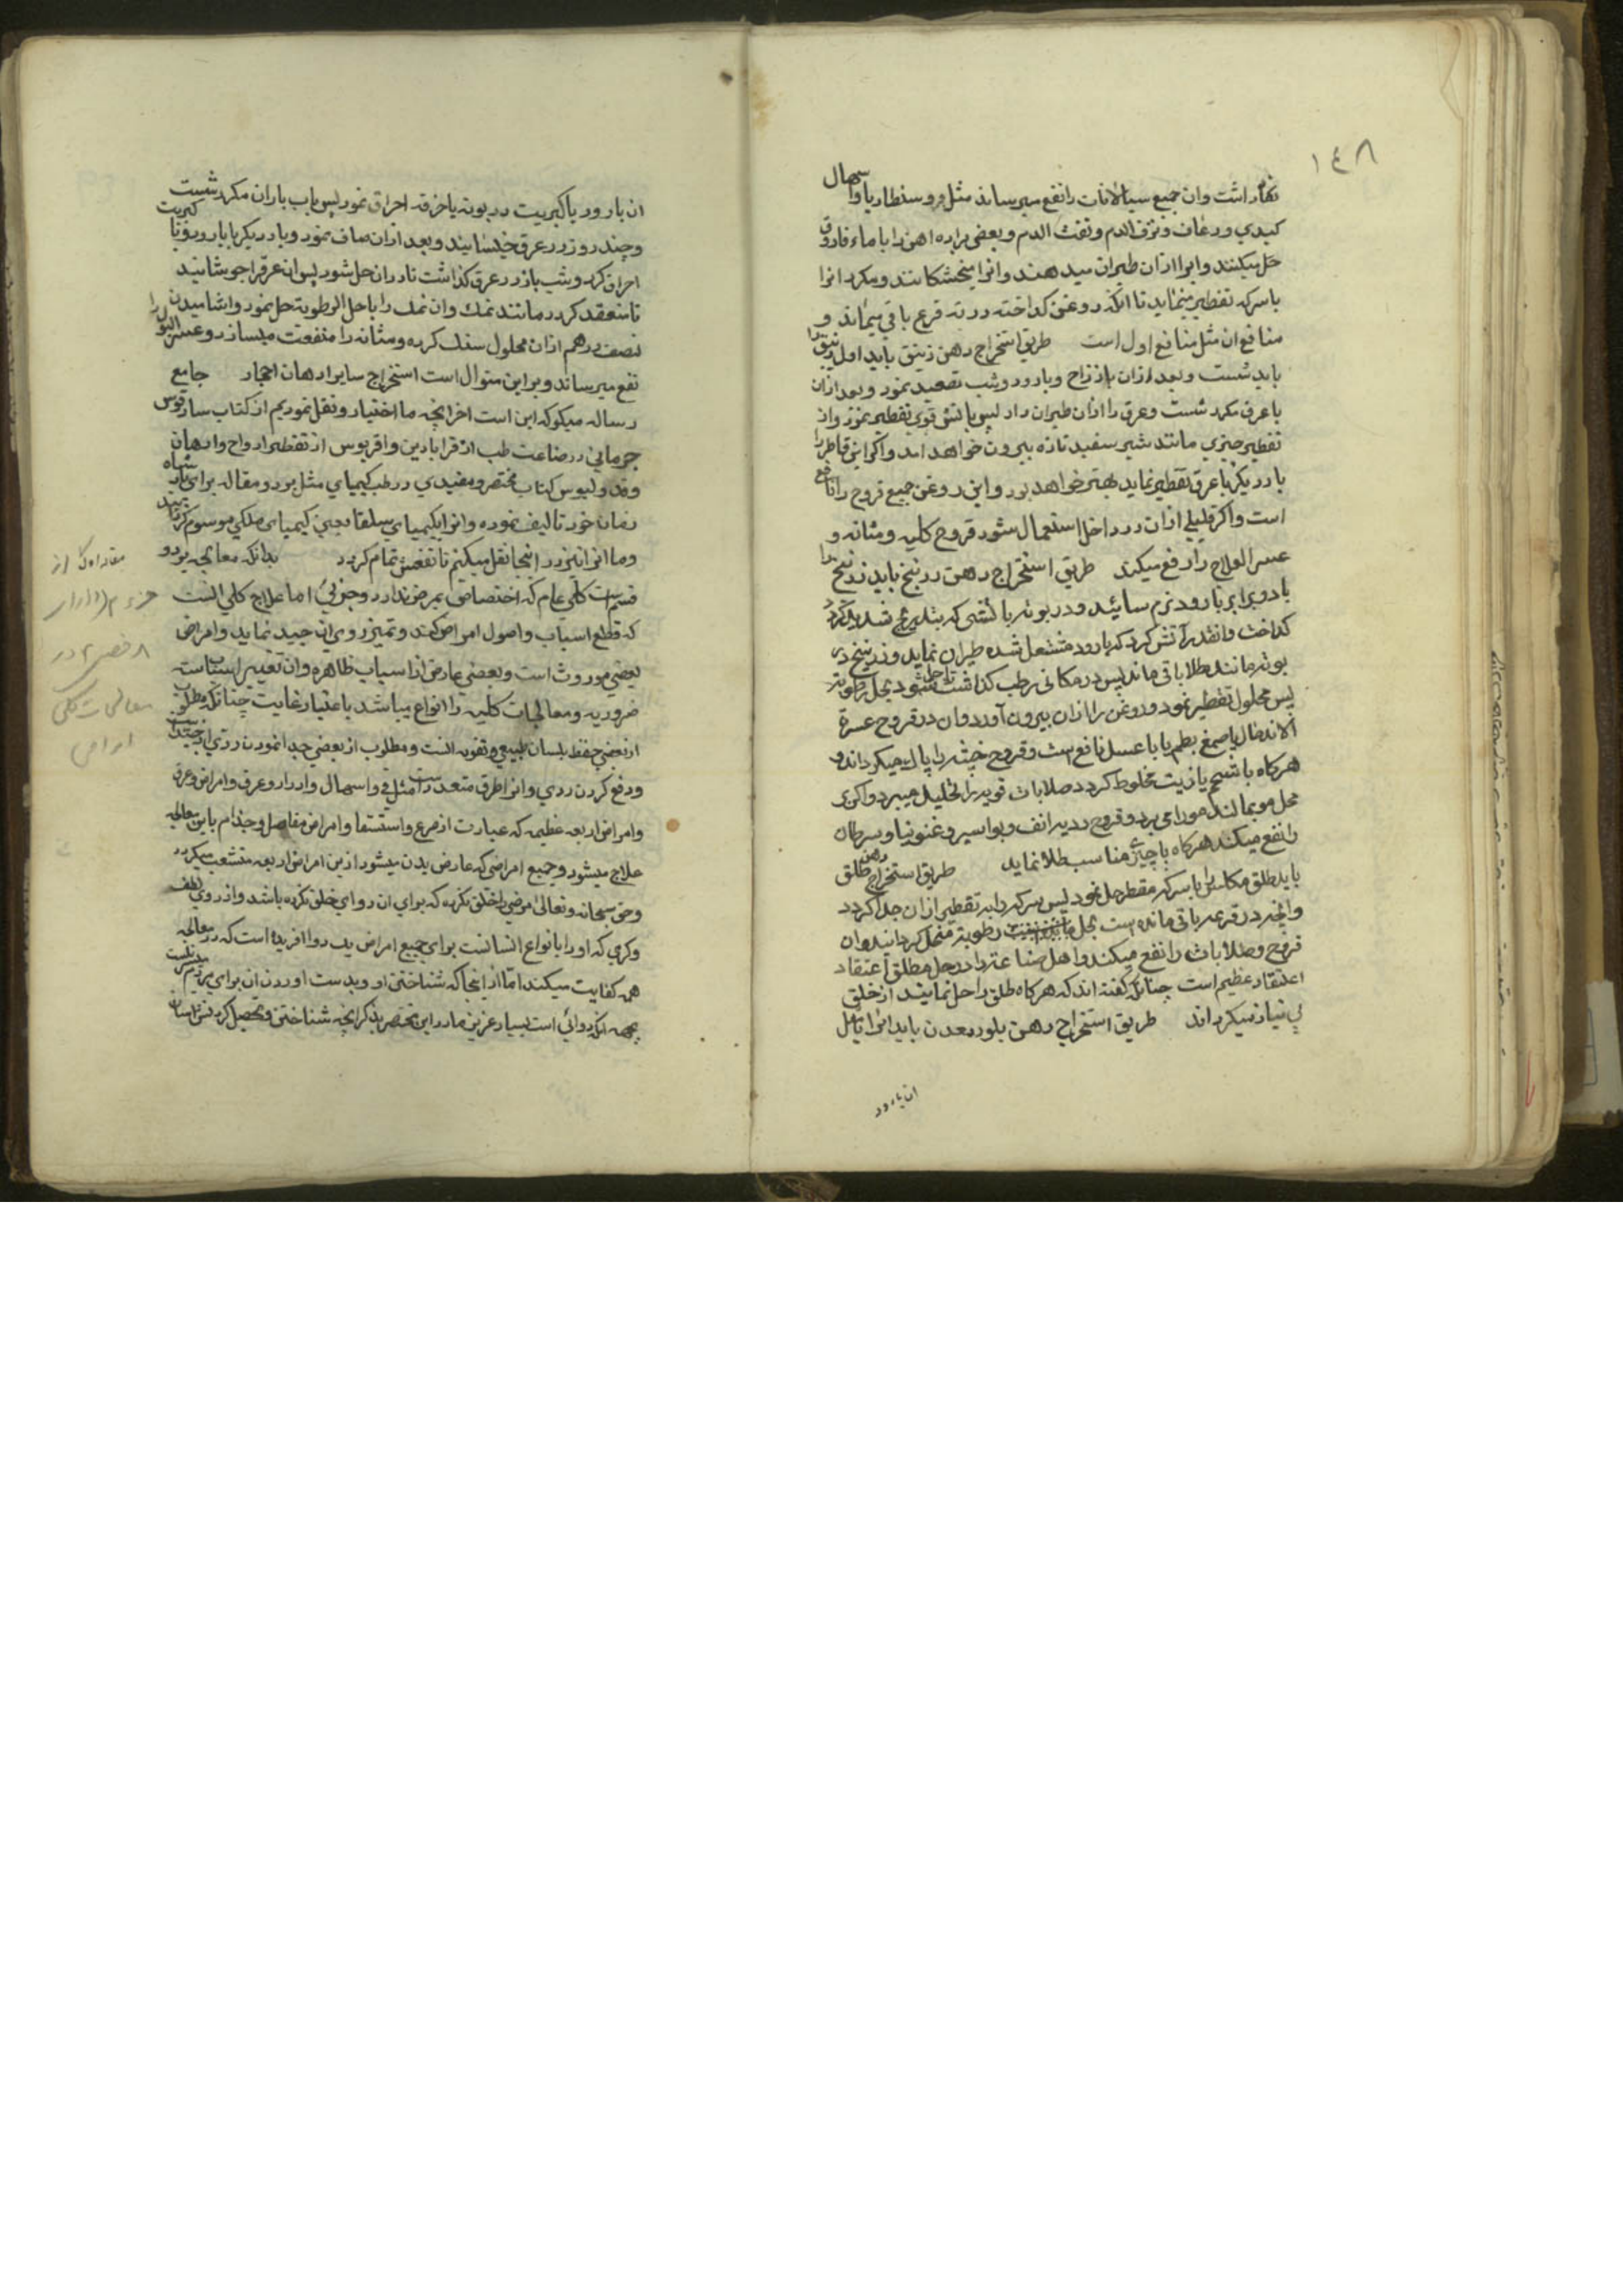 ١٤٨
نگاه داشت وان جمیع سیالانات را نفع میرساند مثل دوسنطاریا واسهال
کبدی ورعاف ونزف الدم ونفث الدم وبعضی براده اهن را با ماء فاروق
حل میکنند وانرا ازان طیران میدهند وانرا میخشکانند ومکرر انرا
باسرکه تقطیر مینماید تا انکه روغن کداخته در ته قرع باقی میماند و
منافع ان مثل منافع اول است طریق استخراج دهن زیبق باید اول زیبق را
باید شست وبعد ازان با زاج وبارود وشب تصعید نمود وبعد ازان
با عرق مکرر شست وعرق را ازان طیران داد پس باتش قوی تقطیر نمود واز
تقطیر چیزی مانند شیر سفید تازه بیرون خواهد امد واکر این قاطر را
بار دیکر با عرق تقطیر نماید بهتر خواهد بود واین روغن جمیع قروح را نافع
است واکر قلیلی ازان در داخل استعمال شود قروح کلیه ومثانه و
عسر العلاج را رفع میکند طریق استخراج دهن زرنیخ باید زرنیخ را
با دو برابر بارود نرم سائید ودر بوته باتشی که بتدریج شدید کردد
کداخت وانقدر آتش کرد که بارود مشتعل شده طیران نماید وزرنیخ در
بوته مانند طلا باقی ماند پس در مکانی رطب کذاشت تا حل شود بحل رطوبته
پس محلول تقطیر نمود وروغن را ازان بیرون آورد وان در قروح عسرة
الاندمال با صمغ بطم یا با عسل نافع است وقروح خبیثه را پاک میکرداند و
هرکاه با شحم یا زیت مخلوط کردد صلابات قویه را تحلیل میبرد واکر در
محل مو بمالند مو را می برد وقروح ردیه انف وبواسیر وغنغرینا وسرطان
را نفع میکند هرکاه با چیزی مناسب طلا نماید طریق استخراج دهن طلق
باید طلق مکلس را با سرکه مقطر حل نمود پس سرکه را به تقطیر ازان جدا کردد
وانچه در قرعه باقی مانده است بحل رطوبته منحل کردانند وان
قروح وصلابات را نفع میکند واهل صناعت را در حل مطلق اعتقاد
اعتقاد عظیم است چنانکه کفته اند که هرکاه طلق را حل نمایند از خلق
بی نیاز میکرداند طریق استخراج دهن بلور معدن باید انرا با مثل
ان بارود
ان بارود یا کبریت در بوته یا خزفه احراق نمود پس باب باران مکرر شست
وچند روز در عرق خیسانید وبعد ازان صاف نمود وبار دیکر با بارود ویا کبریت
احراق کرد وشب باز در عرق کذاشت تا دران حل شود پس ان عرق را جوشانید
تا منعقد کردد مانند نمک وان نمک را با حل الرطوبته حل نمود واشامیدن
نصف درهم ازان محلول سنک کرده ومثانه را منفعت میسازد وعسر البول را
نفع میرساند وبر این منوال است استخراج سایر ادهان احجار جامع
رساله میکوید که این است اخر انچه ما اختیار ونقل نمودیم از کتاب سازقوس
جرمانی در صناعت طب از قرابادین واقریوس از تقطیر ارواح وادهان
وقدولیوس کتاب مختصر ومفیدی در طب کیمیای مثل بر دو مقاله برای پادشاه
زمان خود تالیف نموده وانرا بکیمیای بسلقا یعنی کیمیای ملکی موسوم کردانیده
وما انرا نیز در اینجا نقل میکنم تا نفعش تمام کردد بدانکه معالجه بر دو
قسم است کلی عام که اختصاص بمرض ندارد وجزئی اما علاج کلی انست
که قطع اسباب واصول امراض کند وتمیز روی ان جیید نماید وامراض
بعضی موروث است وبعضی عارض از اسباب ظاهره وان تغییر اسباب سته
ضروریه ومعالجات کلیه را انواع میباشد باعتبار غایت چنانکه مطلوب
از بعضی حفظ بلسان طبیعی وتقویه انست ومطلوب از بعضی جدا نمودن ردی از جید
ودفع کردن ردی وانرا طرق متعدد است مثل قی واسهال وادرار وعرق وامراض وغیره
وامراض اربعه عظیمه که عبارت از صرع واستسقا وامراض مفاصل وجذام باین معالجه
علاج میشود وجمیع امراضی که عارض بدن میشود ازین امراض اربعه منشعب میکردد
وحق سبحانه وتعالی مرضی را خلق نکرده که برای ان دوای خلق نکرده باشد واز روی لطف
وکرمی که او را بانواع انسانست برای جمیع امراض یک دوا افریده است که در معالجه
همه کفایت میکند اما از انجا که شناختن او وبدست اوردن ان برای مردم میسر نیست
بجهة انکه دوائی است بسیار عزیز ما در این مختصر بذکر انچه شناختن وتحصیل کردنش اسان
مقاله اول از
در
معالجات کلی
امراض